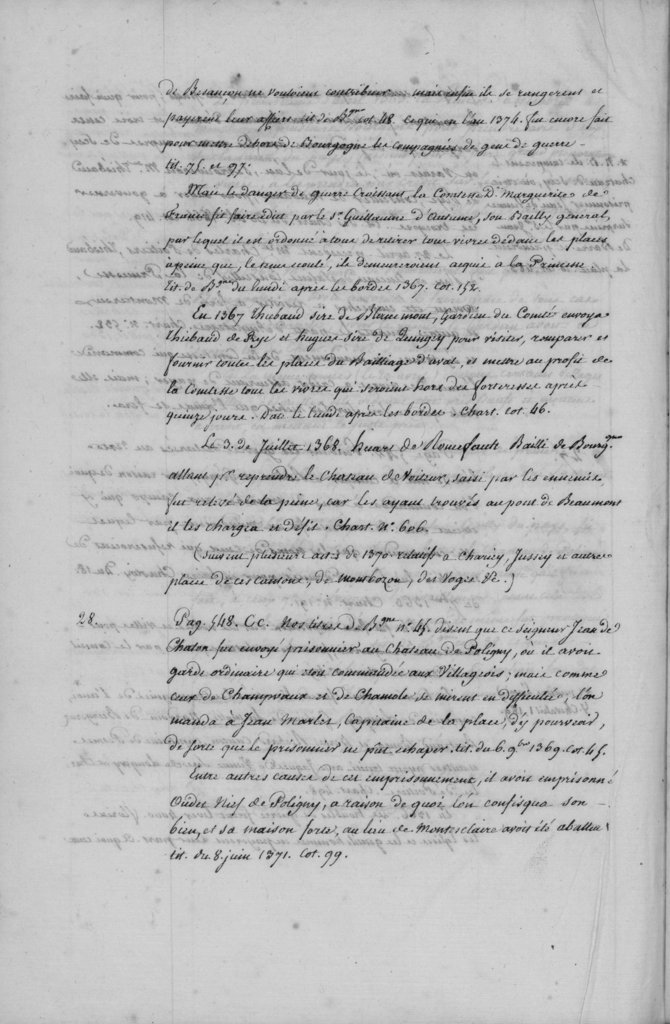 de Besançon ne vouloient contribuer. mais enfin ils se rangerent et
payerent leur affers tit de Bgne cot. 48. ce qui en l'an 1374. fut encore fait
pour mettre dehors de Bourgogne les compagnies de gens de guerre
tit. 75. et 97.
Mais le danger de guerre croissant, la Comtesse De Marguerite de
France fit faire edit par le Sr. Guillaume d'Antume, son Bailly general,
par lequel il est ordonné à tous de retirer tous vivres dedans les places
à peine que, le tems écoulé, ils demeureroient acquis a la Princesse
tit. de Bgne du lundi après les bordes 1367. cot. 152.
En 1367 Thiebaud sire de Blancmont, Gardien du Comté envoya
Thiebaud de Rye et hugues sire de Quingey pour visiter, remparer et
fournir toutes les places du Bailliage d'aval, et mettre au profit de
la Comtesse tous les vivres qui seroient hors des forteresses après
quinze jours. Dat. le lundi après les bordes. Chart. cot. 46.
Le 3. de Juillet 1368. huart de Ronsefault Bailli de Bourgne
allant pr. reprendre le Chateau de Voiseur, saisi par les ennemis
fut relevé de la peine, car les ayant trouvés au pont de Beaumont
il les chargea et défit. Chart. No. 606.
(suivent plusieurs actes de 1370 relatifs à Chariez, Jussey et autres
places de ces cantons, de montbozon, des Voges &c.)
28. Pag. 548. C.C. Nos titres de Bgne no. 45. disent que ce seigneur Jean de
Chalon fut envoyé prisonnier au Chateau de Poligny, où il avoit
garde ordinaire qui étoit commandée aux Villageois; mais comme
ceux de Champvaux et de Chamole se mirent en difficulté, l'on
manda à Jean Marlet, Capitaine de la place, d'y pourvoir,
de sorte que le prisonnier ne pût échaper. tit. du 6. 9bre 1369. cot. 45.
Entre autres causes de cet emprisonnement, il avoit emprisonné
Oudet Nief de Poligny, a raison de quoi l'on confisqua son
bien, et sa maison forte, au lieu de Mont-sclaire avoit été abattue
tit. du 8. juin 1371. Cot. 99.